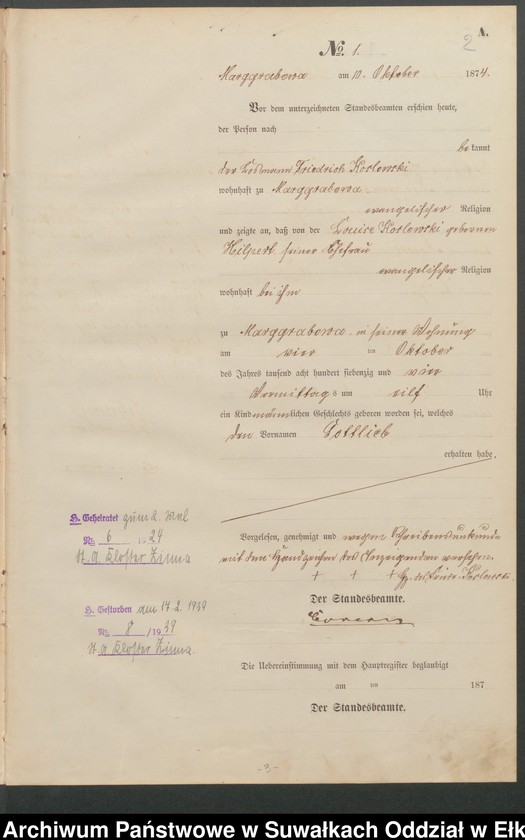 A.
2
No. 1.
Marggrabowa am 10. Oktober 1874.
Vor dem unterzeichneten Standesbeamten erschien heute,
der Person nach
bekannt
der Losmann Friedrich Koslowski
wohnhaft zu Marggrabowa
evangelischer Religion
und zeigte an, daß von der Louise Koslowski geborenen
Hilpert seiner Ehefrau
evangelischer Religion
wohnhaft bei ihm
zu Marggrabowa in seiner Wohnung
am vier ten Oktober
des Jahres tausend acht hundert siebenzig und vier
Vormittags um eilf Uhr
ein Kind männlichen Geschlechts geboren worden sei, welches
den Vornamen Gottlieb
erhalten habe.
H. Geheiratet zum 2. Mal
Nr. 6 1924
St. A Kloster Zinna
Vorgelesen, genehmigt und wegen Schreibensunkunde
mit dem Handzeichen des Anzeigenden versehen.
+ + + Hz. des Friedr. Koslowski.
Der Standesbeamte.
H. Gestorben den 17 2. 1939
Nr. 8/1939
St. A Kloster Zinna.
Die Uebereinstimmung mit dem Hauptregister beglaubigt
am ten 187
Der Standesbeamte.
-3-
Archiwum Państwowe w Suwałkach Oddział w Ełk